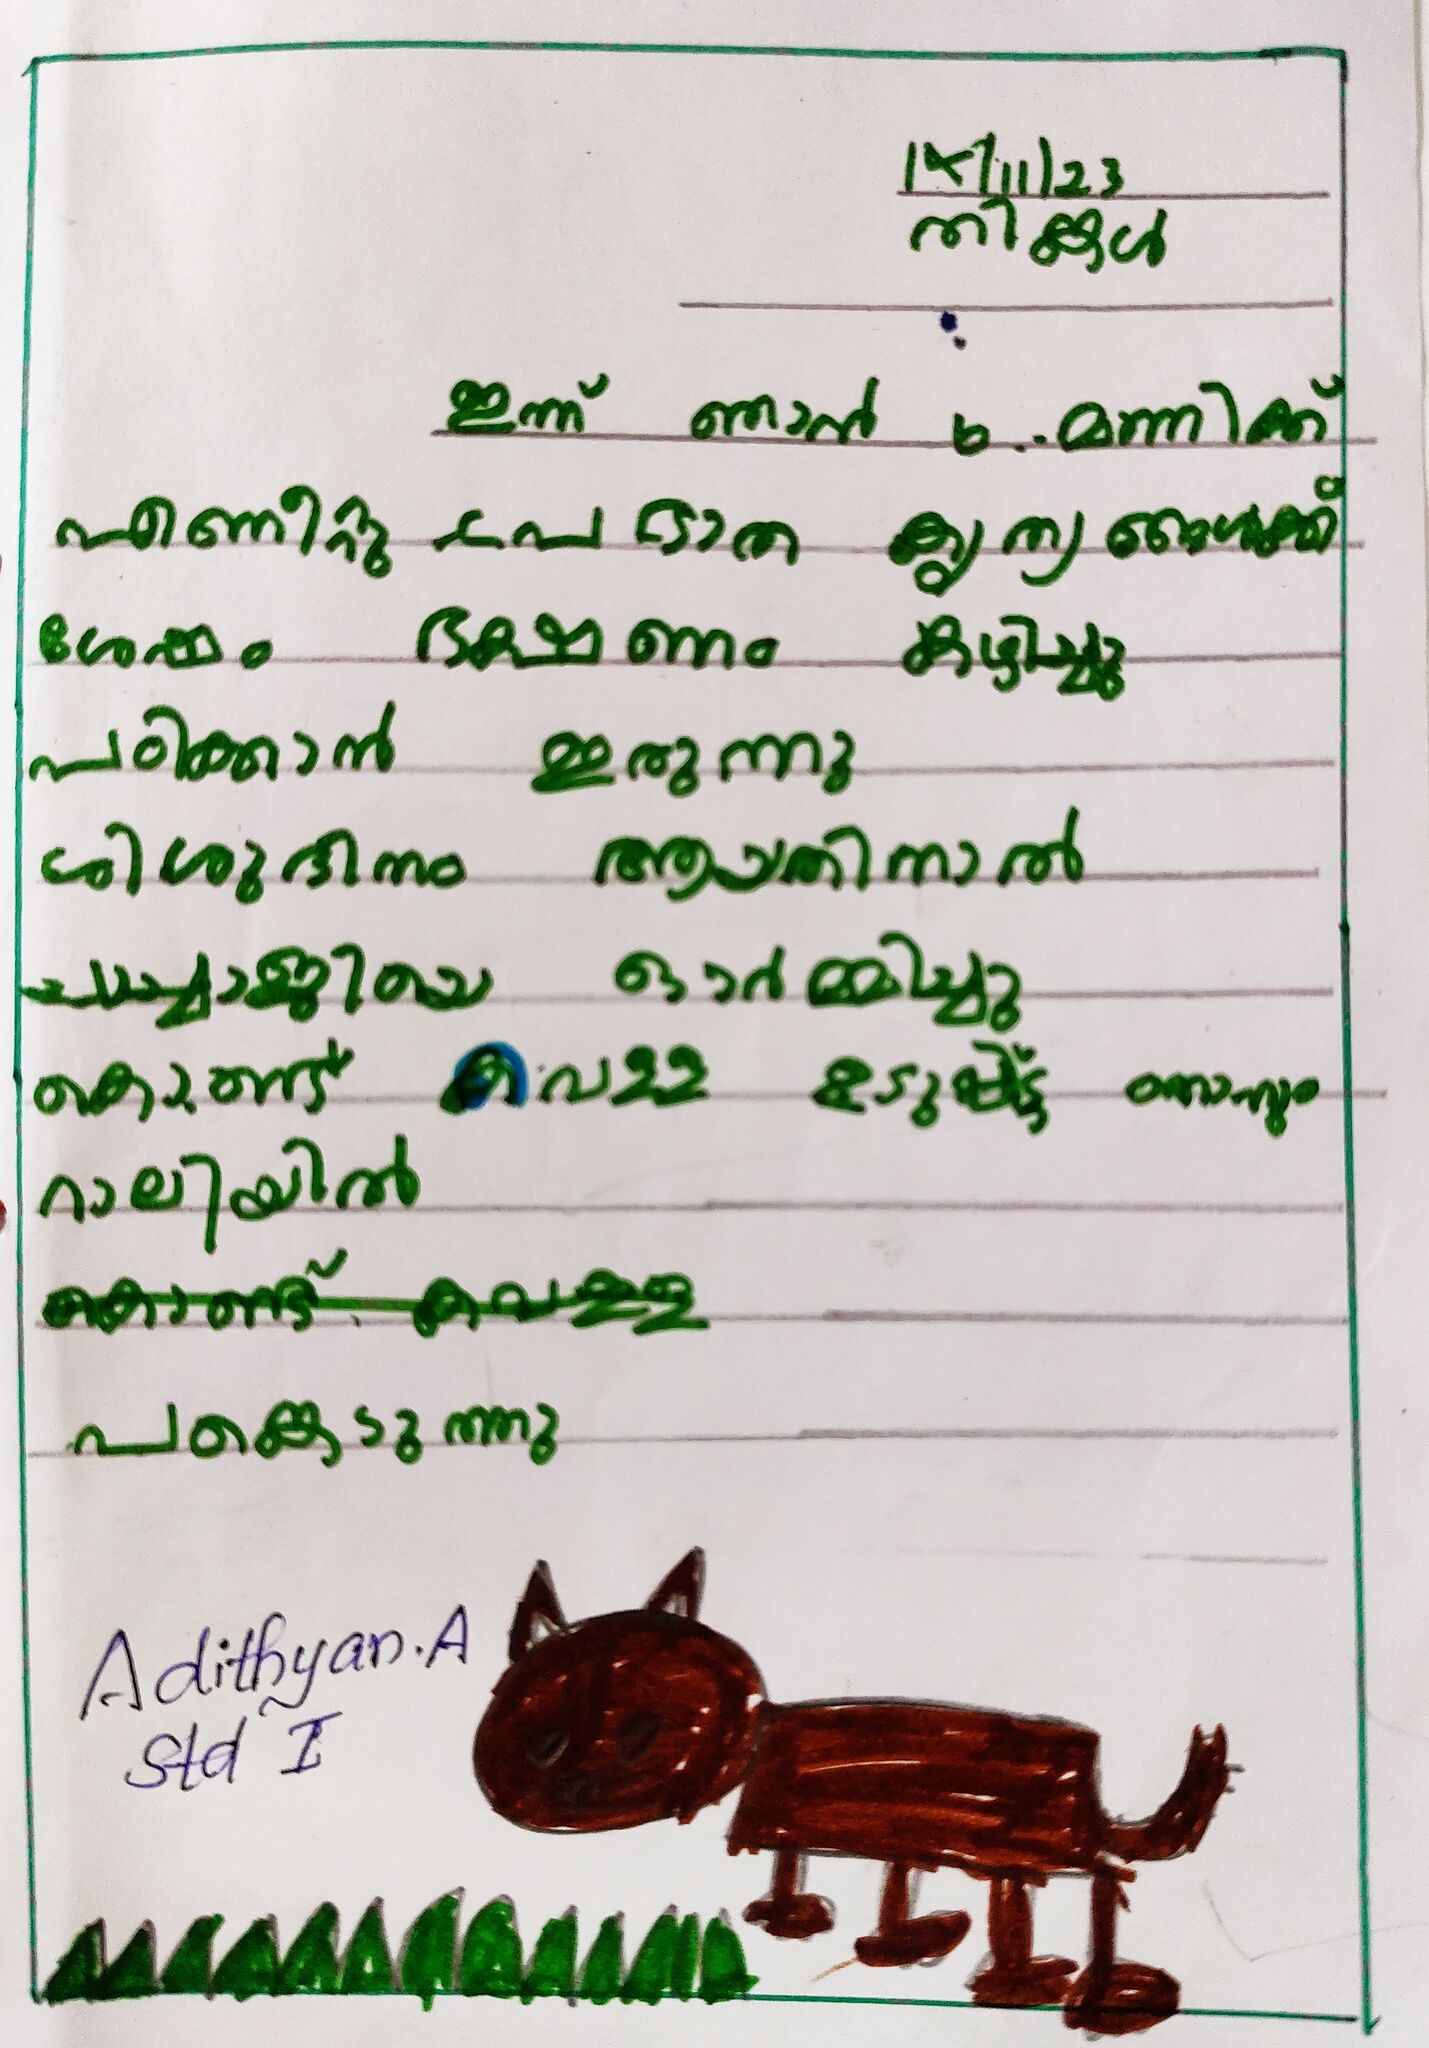 14/11/23
തിങ്കൾ
ഇന്ന് ഞാൻ 6..മണിക്ക്
എണീറ്റു പ്രഭാത കൃത്യങ്ങൾക്ക്
ശേഷം ഭക്ഷണം കഴിച്ചു
പഠിക്കാൻ ഇരുന്നു
ശിശുദിനം ആയതിനാൽ
ചാച്ചാജിയെ ഓർമ്മിച്ചു
കൊണ്ട് വെള്ള ഉടുപ്പിട്ട് ഞാനും
റാലിയിൽ
കൊണ്ട്. വെള്ള
പങ്കെടുത്തു
Adithyan.A
Std I